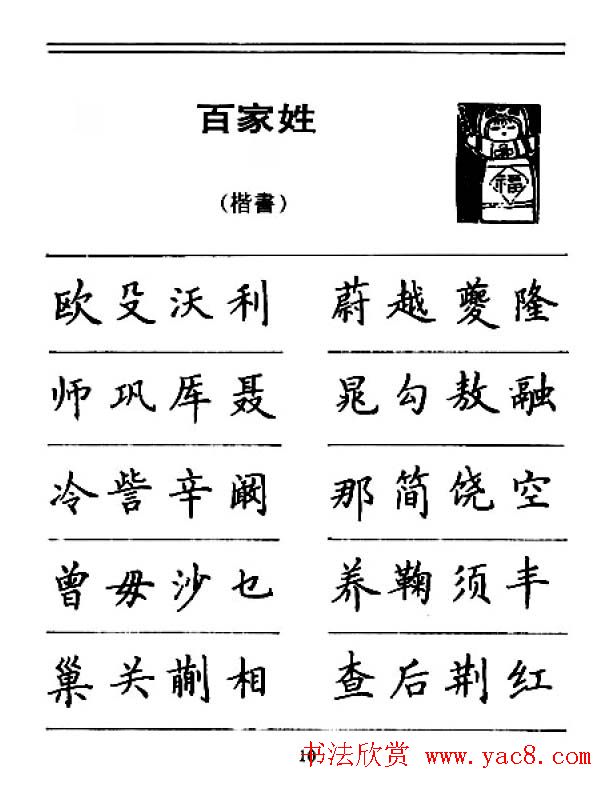 百家姓
福
（楷書）
欧殳沃利 蔚越夔隆
师巩厍聂 晁勾敖融
冷訾辛阚 那简饶空
曾毋沙乜 养鞠须丰
巢关蒯相 查后荆红
10
书法欣赏 www.yac8.com